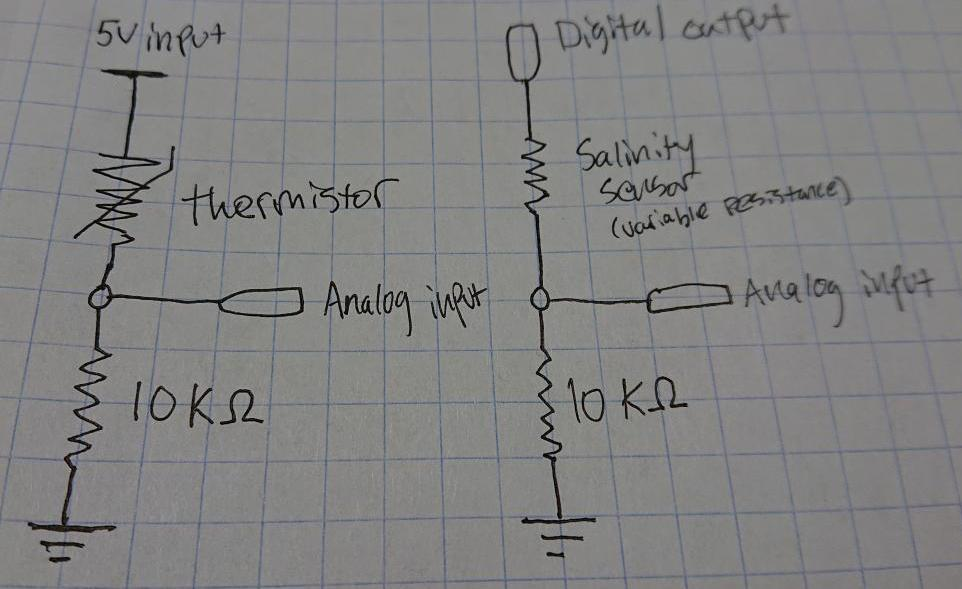 5V input
thermistor
Analog input
10 KΩ
Digital output
Salinity
sensor
(variable resistance)
Analog input
10 KΩ